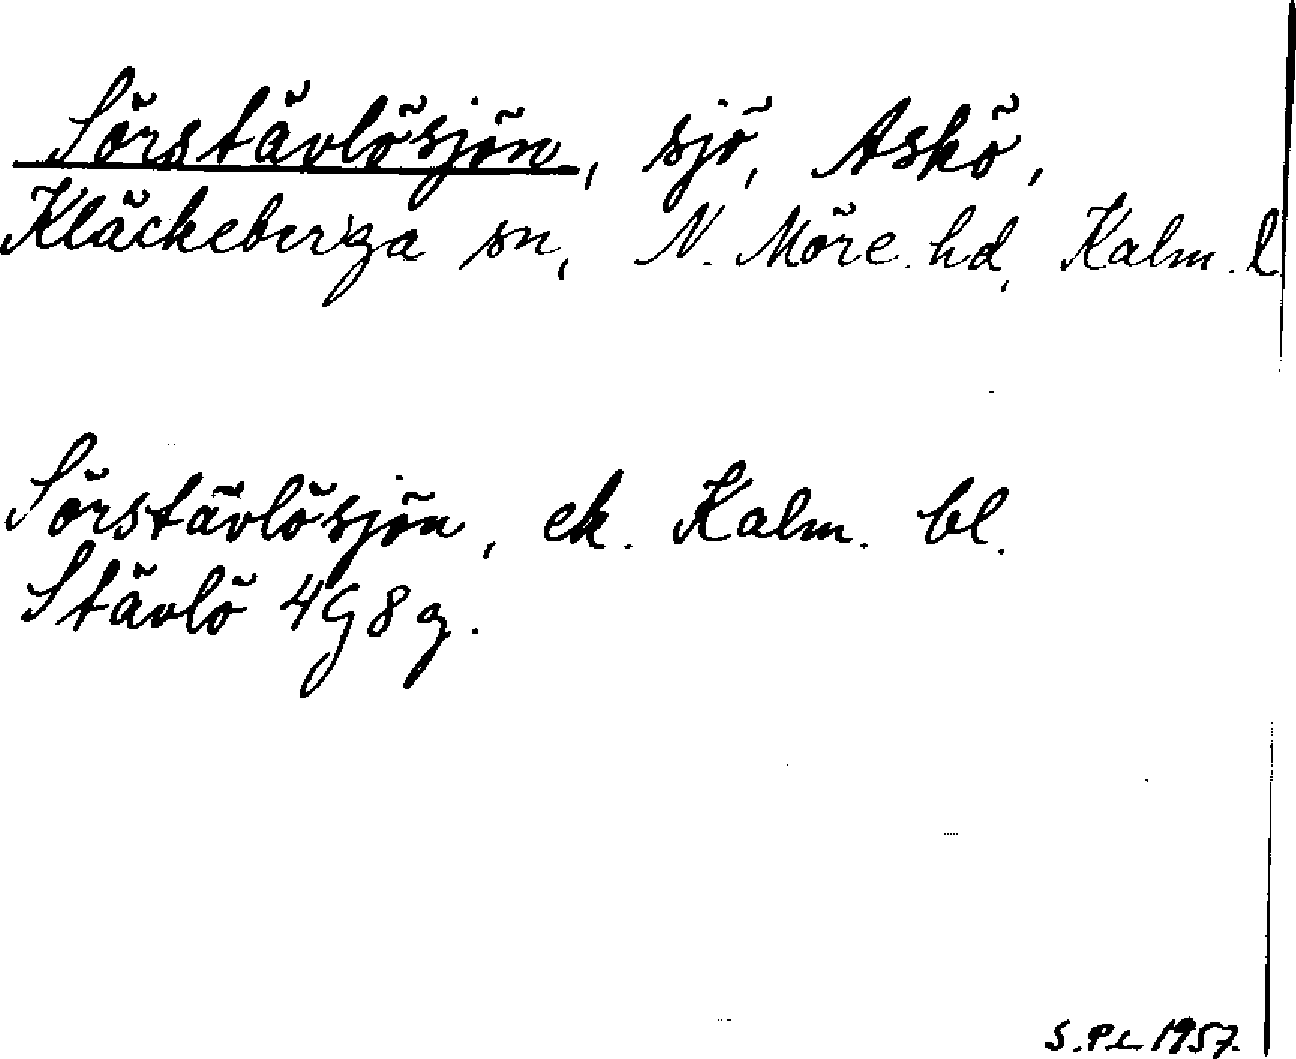 Sörstävlösjön, sjö, Askö,
Kläckeberga sn, N. Möre hd, Kalm. l.
Sörstävlösjön, ek. Kalm. bl.
Stävlö 4G8g.
S.P.L 1957.